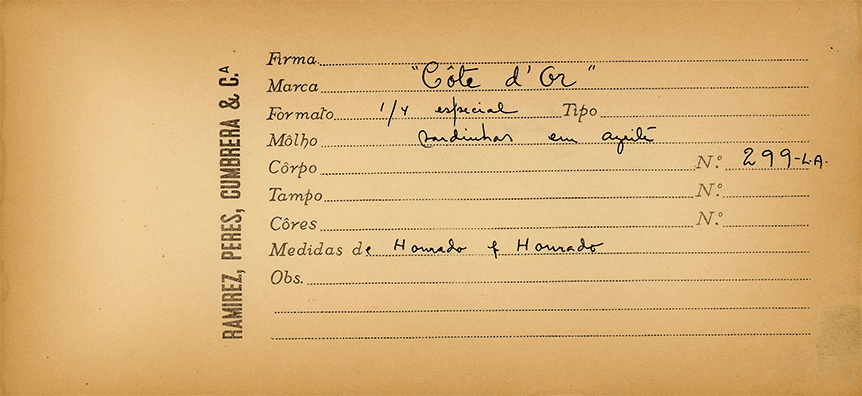 RAMIREZ, PERES, CUMBRERA & C.ª
Firma
Marca "Côte d'Or"
Formato 1/4 especial Tipo
Môlho sardinhas em azeite
Côrpo N.º 299-L.A.
Tampo N.º
Côres N.º
Medidas de Honrado & Honrado
Obs.